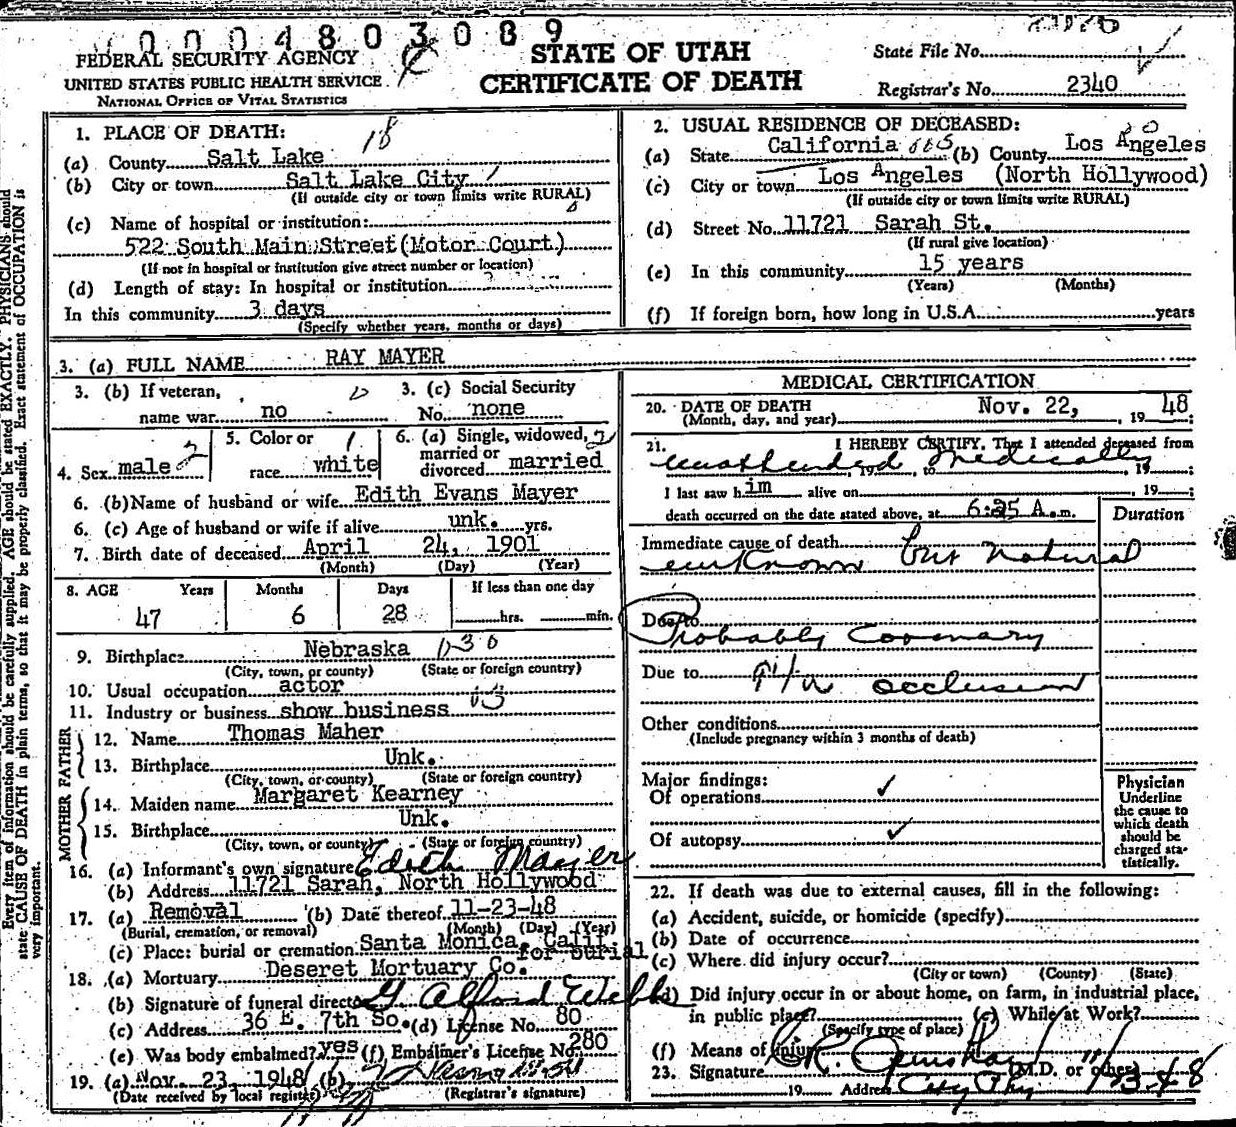 0004803089
FEDERAL SECURITY AGENCY
UNITED STATES PUBLIC HEALTH SERVICE
NATIONAL OFFICE OF VITAL STATISTICS
STATE OF UTAH
CERTIFICATE OF DEATH
State File No.
Registrar's No. 2340
1. PLACE OF DEATH: 18
(a) County Salt Lake
(b) City or town Salt Lake City
(If outside city or town limits write RURAL)
(c) Name of hospital or institution:
522 South Main Street (Motor Court)
(If not in hospital or institution give street number or location)
(d) Length of stay: In hospital or institution
In this community 3 days
(Specify whether years, months or days)
2. USUAL RESIDENCE OF DECEASED:
(a) State California (b) County Los Angeles
(c) City or town Los Angeles (North Hollywood)
(If outside city or town limits write RURAL)
(d) Street No. 11721 Sarah St.
(If rural give location)
(e) In this community 15 years
(Years) (Months)
(f) If foreign born, how long in U.S.A. years
3. (a) FULL NAME RAY MAYER
3. (b) If veteran, 3. (c) Social Security
name war no No. none
4. Sex male 2 5. Color or race white 1 6. (a) Single, widowed, married or divorced married
6. (b) Name of husband or wife Edith Evans Mayer
6. (c) Age of husband or wife if alive unk. yrs.
7. Birth date of deceased April 24, 1901
(Month) (Day) (Year)
8. AGE Years Months Days If less than one day
47 6 28 hrs. min.
9. Birthplace Nebraska
(City, town, or county) (State or foreign country)
10. Usual occupation actor
11. Industry or business show business
FATHER
12. Name Thomas Maher
13. Birthplace Unk.
(City, town, or county) (State or foreign country)
MOTHER
14. Maiden name Margaret Kearney
15. Birthplace Unk.
(City, town, or county) (State or foreign country)
16. (a) Informant's own signature Edith Mayer
(b) Address 11721 Sarah, North Hollywood
17. (a) Removal (b) Date thereof 11-23-48
(Burial, cremation, or removal) (Month) (Day) (Year)
(c) Place: burial or cremation Santa Monica, Calif for burial
18. (a) Mortuary Deseret Mortuary Co.
(b) Signature of funeral director
(c) Address 36 E. 7th So. (d) License No. 80
(e) Was body embalmed? yes (f) Embalmer's License No. 280
19. (a) Nov. 23, 1948 (b)
(Date received by local registrar) (Registrar's signature)
MEDICAL CERTIFICATION
20. DATE OF DEATH Nov. 22, 19 48
(Month, day, and year)
21. I HEREBY CERTIFY, That I attended deceased from
unattended medically
, 19 to , 19 ;
I last saw him alive on , 19 ;
death occurred on the date stated above, at 6:25 A.m.
Duration
Immediate cause of death
unknown but natural
Due to
Probably Coronary
Due to occlusion
Other conditions
(Include pregnancy within 3 months of death)
Major findings:
Of operations ✓
Of autopsy ✓
Physician
Underline
the cause to
which death
should be
charged sta-
tistically.
22. If death was due to external causes, fill in the following:
(a) Accident, suicide, or homicide (specify)
(b) Date of occurrence
(c) Where did injury occur?
(City or town) (County) (State)
(d) Did injury occur in or about home, on farm, in industrial place,
in public place? (e) While at Work?
(Specify type of place)
(f) Means of injury
23. Signature (M.D. or other)
19 Address City Phy
Every item of information should be carefully supplied. AGE should be stated EXACTLY. PHYSICIANS should
state CAUSE OF DEATH in plain terms, so that it may be properly classified. Exact statement of OCCUPATION is
very important.